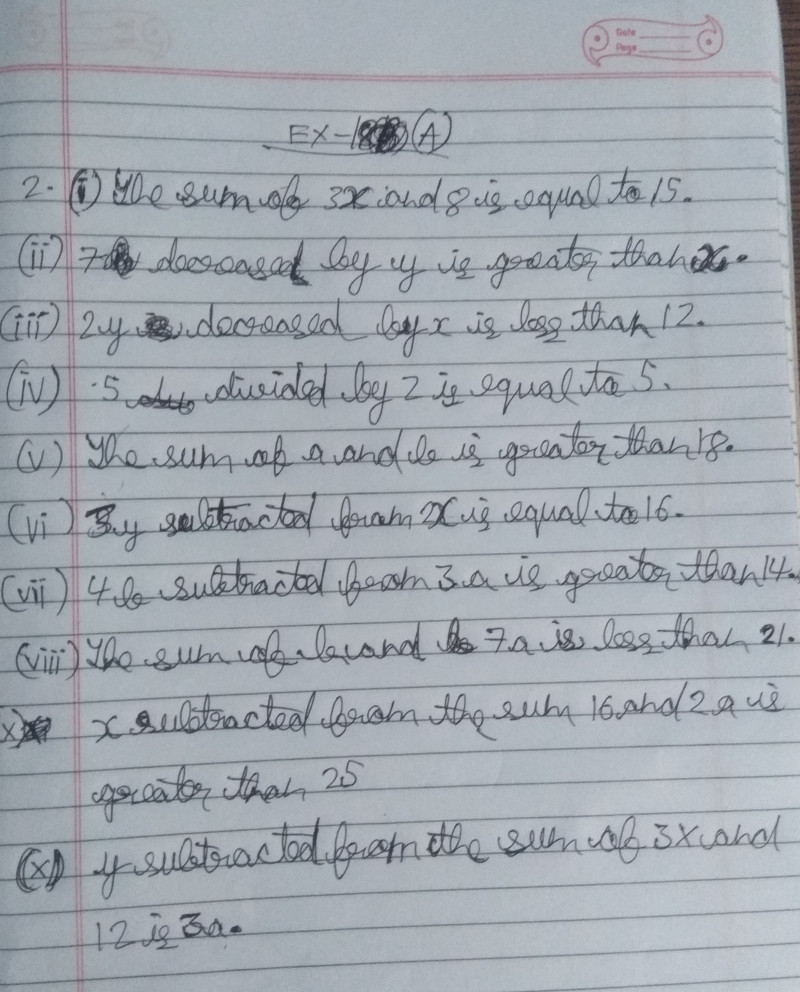 Date
Page
EX-18 (A)
2. (i) The sum of 3x and 8 is equal to 15.
(ii) 7 decreased by y is greater than x.
(iii) 2y decreased by x is less than 12.
(iv) 5 divided by z is equal to 5.
(v) The sum of a and b is greater than 18.
(vi) 3y subtracted from 2x is equal to 16.
(vii) 4b subtracted from 3a is greater than 14.
(viii) The sum of b and 7a is less than 21.
x) x subtracted from the sum 16 and 2a is
greater than 25
(x) y subtracted from the sum of 3x and
12 is 3a.